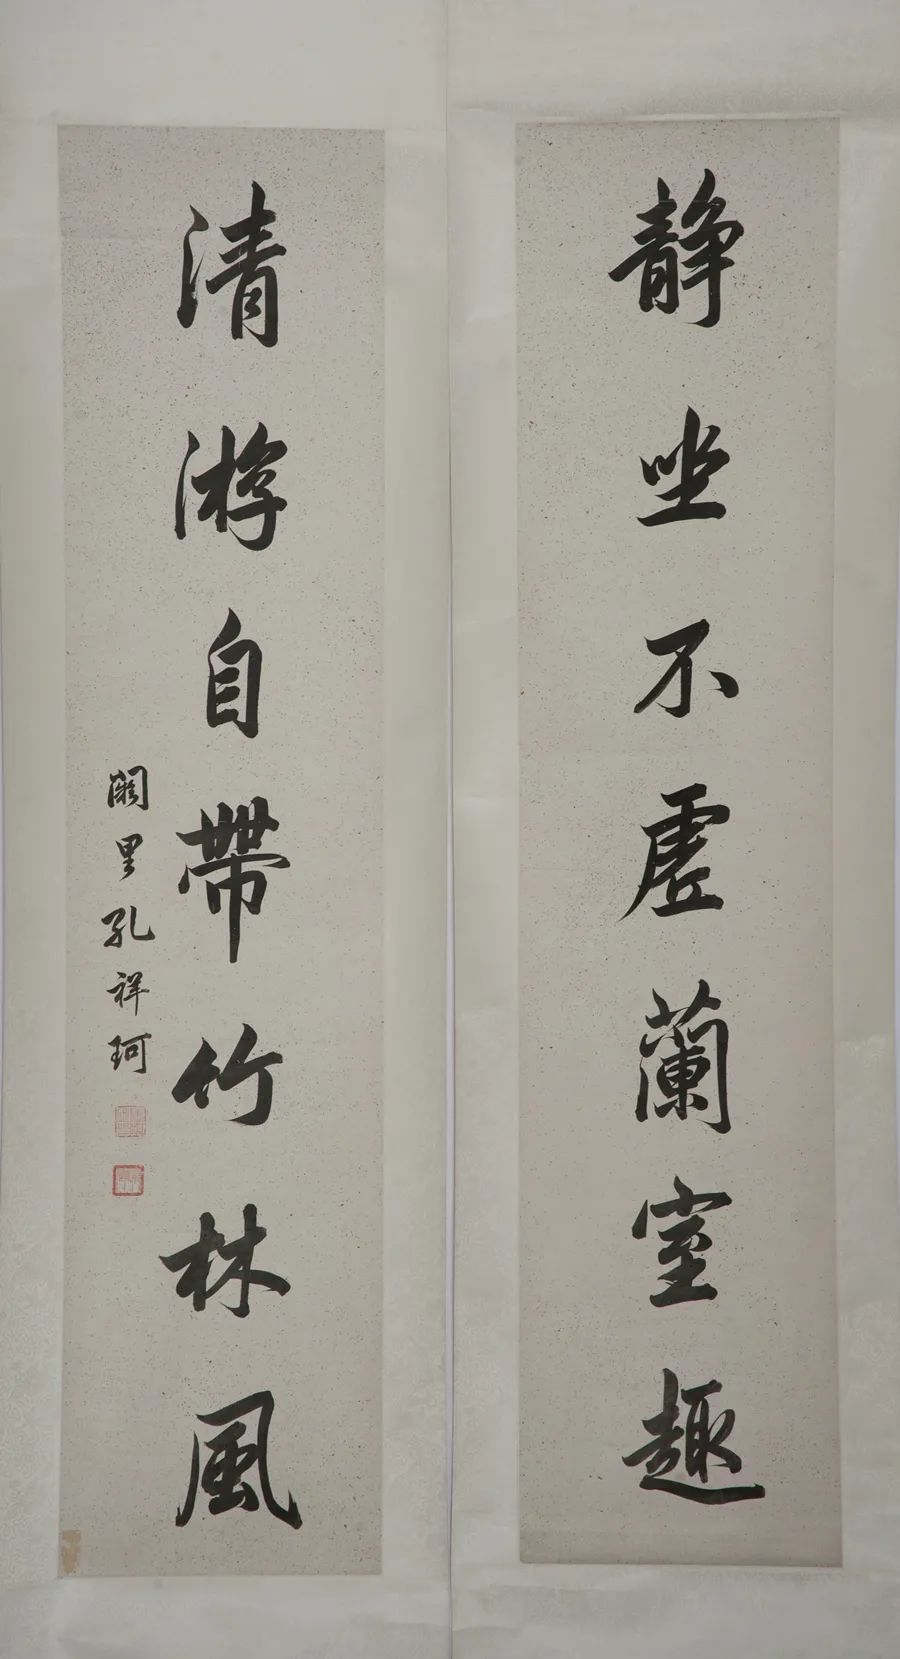 静坐不虚蘭室趣
清游自帶竹林風
闕里孔祥珂